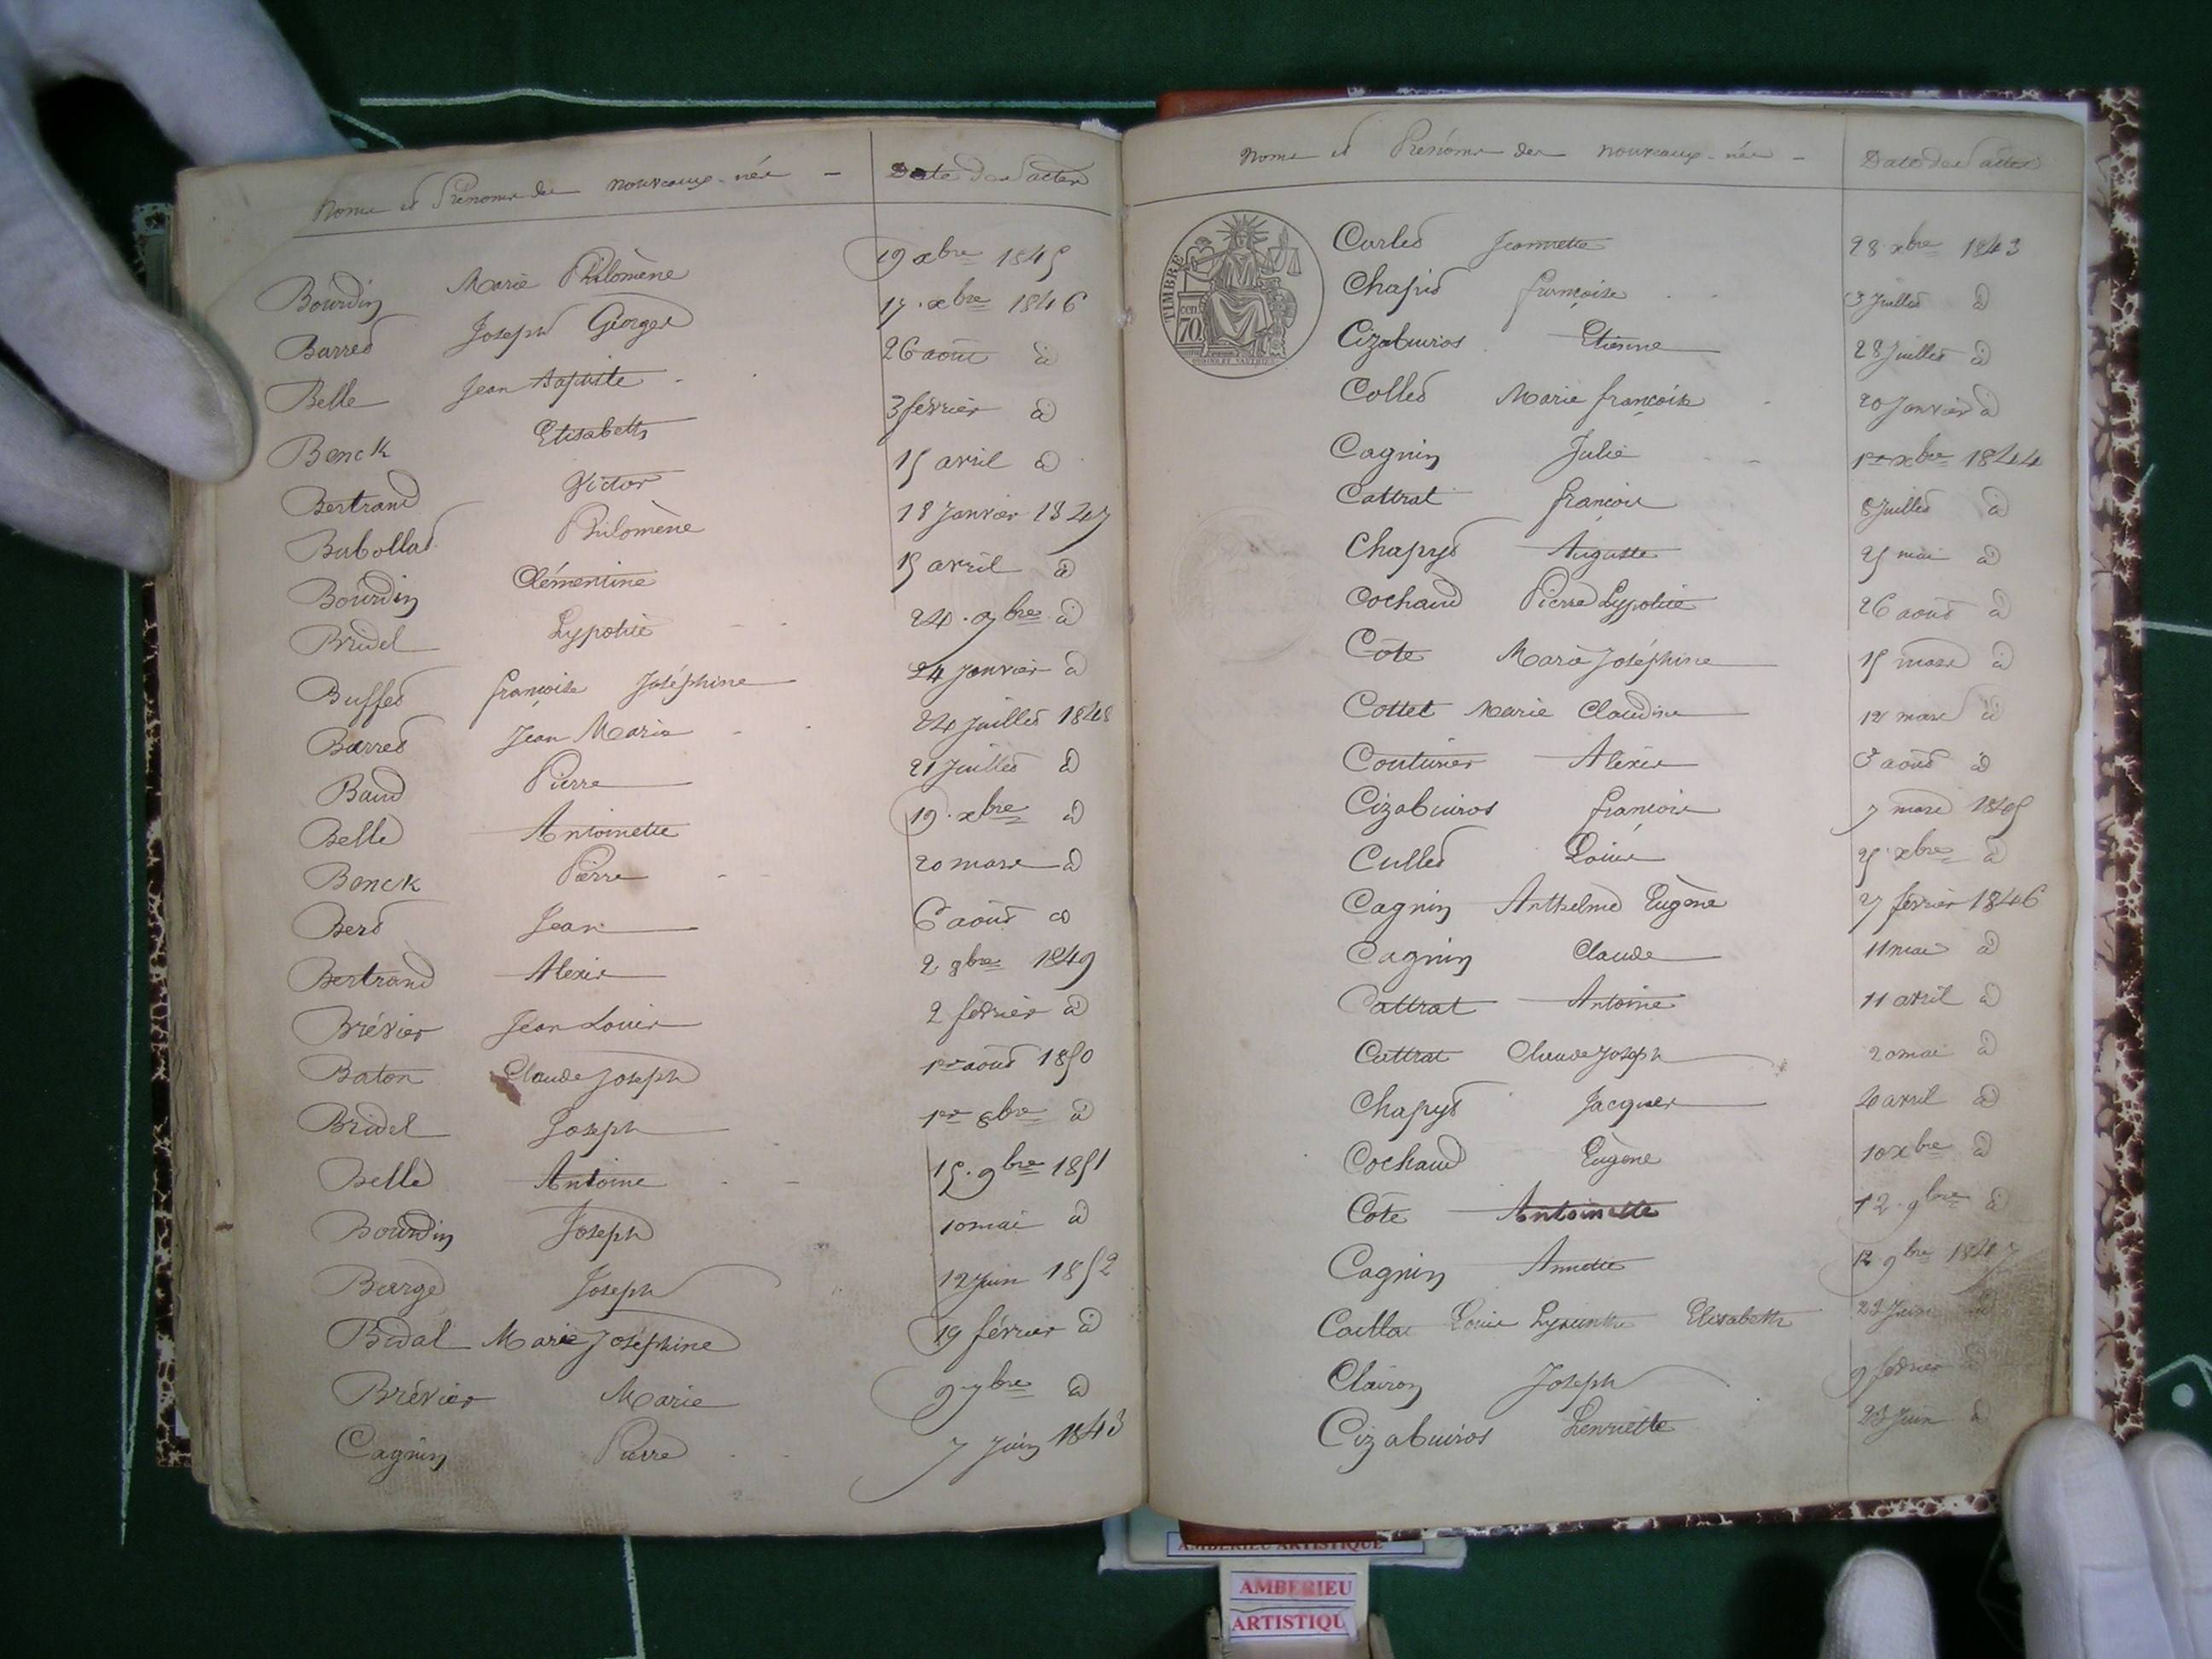 Noms et Prénoms des nouveaux-nés - Date des actes
Bourdin Marie Philomène 19 xbre 1845
Barret Joseph Georges 17 xbre 1846
Belle Jean Baptiste 26 août d
Benck Elisabeth 3 février d
Bertrand Victor 15 avril d
Bubollat Philomène 18 Janvier 1847
Bourdin Clémentine 15 avril d
Bridel Lypolite 24 . 9bre d
Buffet françoise Joséphine 24 Janvier d
Barret Jean Marie 24 Juillet 1848
Baud Pierre 21 Juillet d
Belle Antoinette 19 . xbre d
Benck Pierre 20 mars d
Bert Jean 6 août d
Bertrand Alexis 2 . 8bre 1849
Brévier Jean Louis 2 février d
Baton Claude Joseph 1er août 1850
Bridel Joseph 1er 8bre d
Belle Antoine 15 . 9bre 1851
Bourdin Joseph 10 mai d
Barge Joseph 12 Juin 1852
Bidal Marie Joséphine 19 février d
Brévier Marie 9 . 7bre d
Cagnin Pierre 7 Juin 1843
Noms et Prénoms des nouveaux-nés - Date des actes
TIMBRE
cen.
70
Curlet Jeannette 28 xbre 1843
Chapit françoise 3 Juillet d
Cizabuiros Etienne 28 Juillet d
Collet Marie françoise 20 Janvier d
Cagnin Julie 1er xbre 1844
Cattrat françois 8 Juillet d
Chapyt Auguste 25 mai d
Cochaud Pierre Lypolite 26 août d
Côte Marie Joséphine 15 mars d
Cottet Marie Claudine 12 mars d
Couturier Alexis 3 août d
Cizabuiros françois 7 mars 1845
Cullet Louis 25 xbre d
Cagnin Anthelme Eugène 27 février 1846
Cagnin Claude 11 mai d
Cattrat Antoine 11 avril d
Cattrat Claude Joseph 20 mai d
Chapyt Jacques 4 avril d
Cochaud Eugène 10 xbre d
Côte Antoinette 12 . 9bre d
Cagnin Annette 12 9bre 1847
Caillat Louis Elisabeth 23 Juin d
Clairon Joseph 9 février d
Cizabuiros Henriette 23 Juin d
AMBERIEU ARTISTIQUE
AMBERIEU
ARTISTIQU